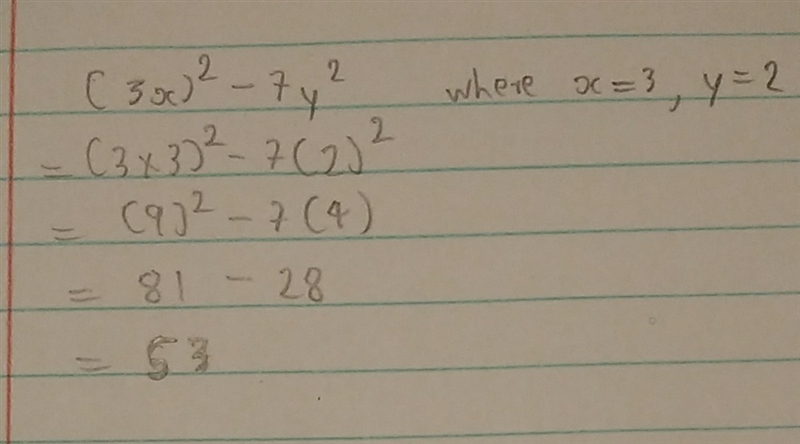 (3x)² - 7y² where x=3, y=2
= (3×3)² - 7(2)²
= (9)² - 7(4)
= 81 - 28
= 53